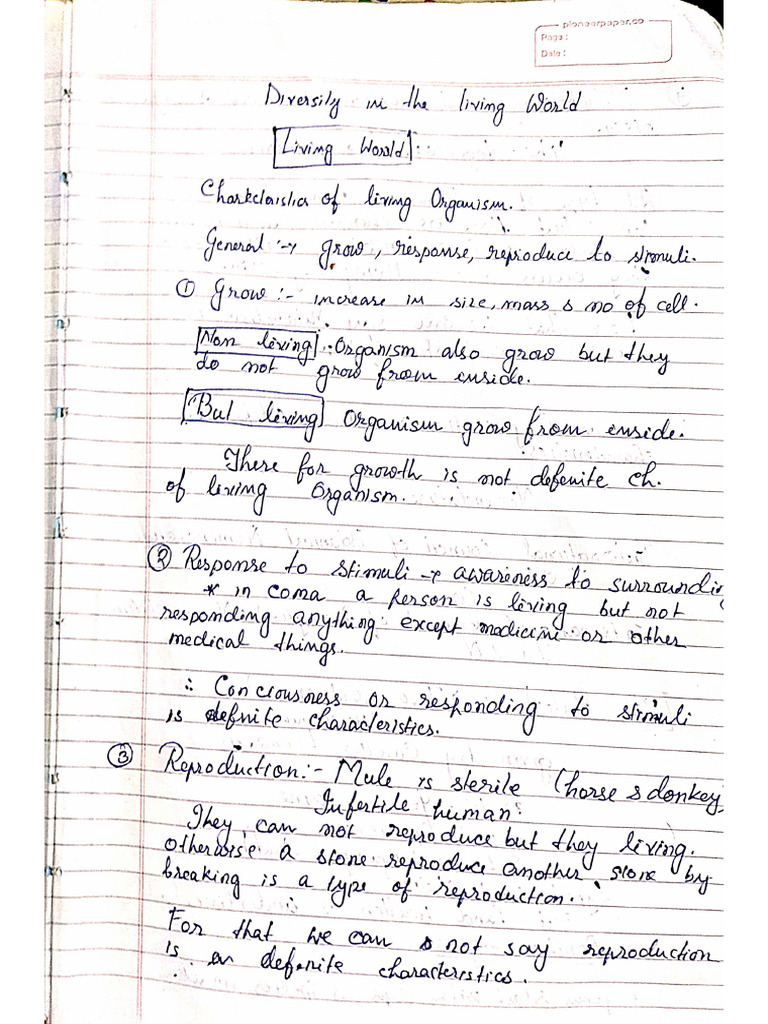 pioneerpaper.co
Page :
Date :
Diversity in the living World
Living World
Charkteristics of living Organism.
General :-> grow, response, reproduce to stimuli.
① Grow :- increase in size, mass & no of cell.
Non living : Organism also grow but they
do not grow from enside.
But living Organism grow from enside.
There for growth is not defenite ch.
of living Organism.
② Response to stimuli -> awareness to surroundin
* in coma a person is living but not
responding anything except medicine or other
medical things.
∴ Conciousness or responding to stimuli
is defnite characteristics.
③ Reproduction :- Mule is sterile (horse & donkey
Infertile human.
They can not reproduce but they living.
otherwise a stone reproduce another stone by
breaking is a type of reproduction.
For that we can not say reproduction
is a defenite characteristics.